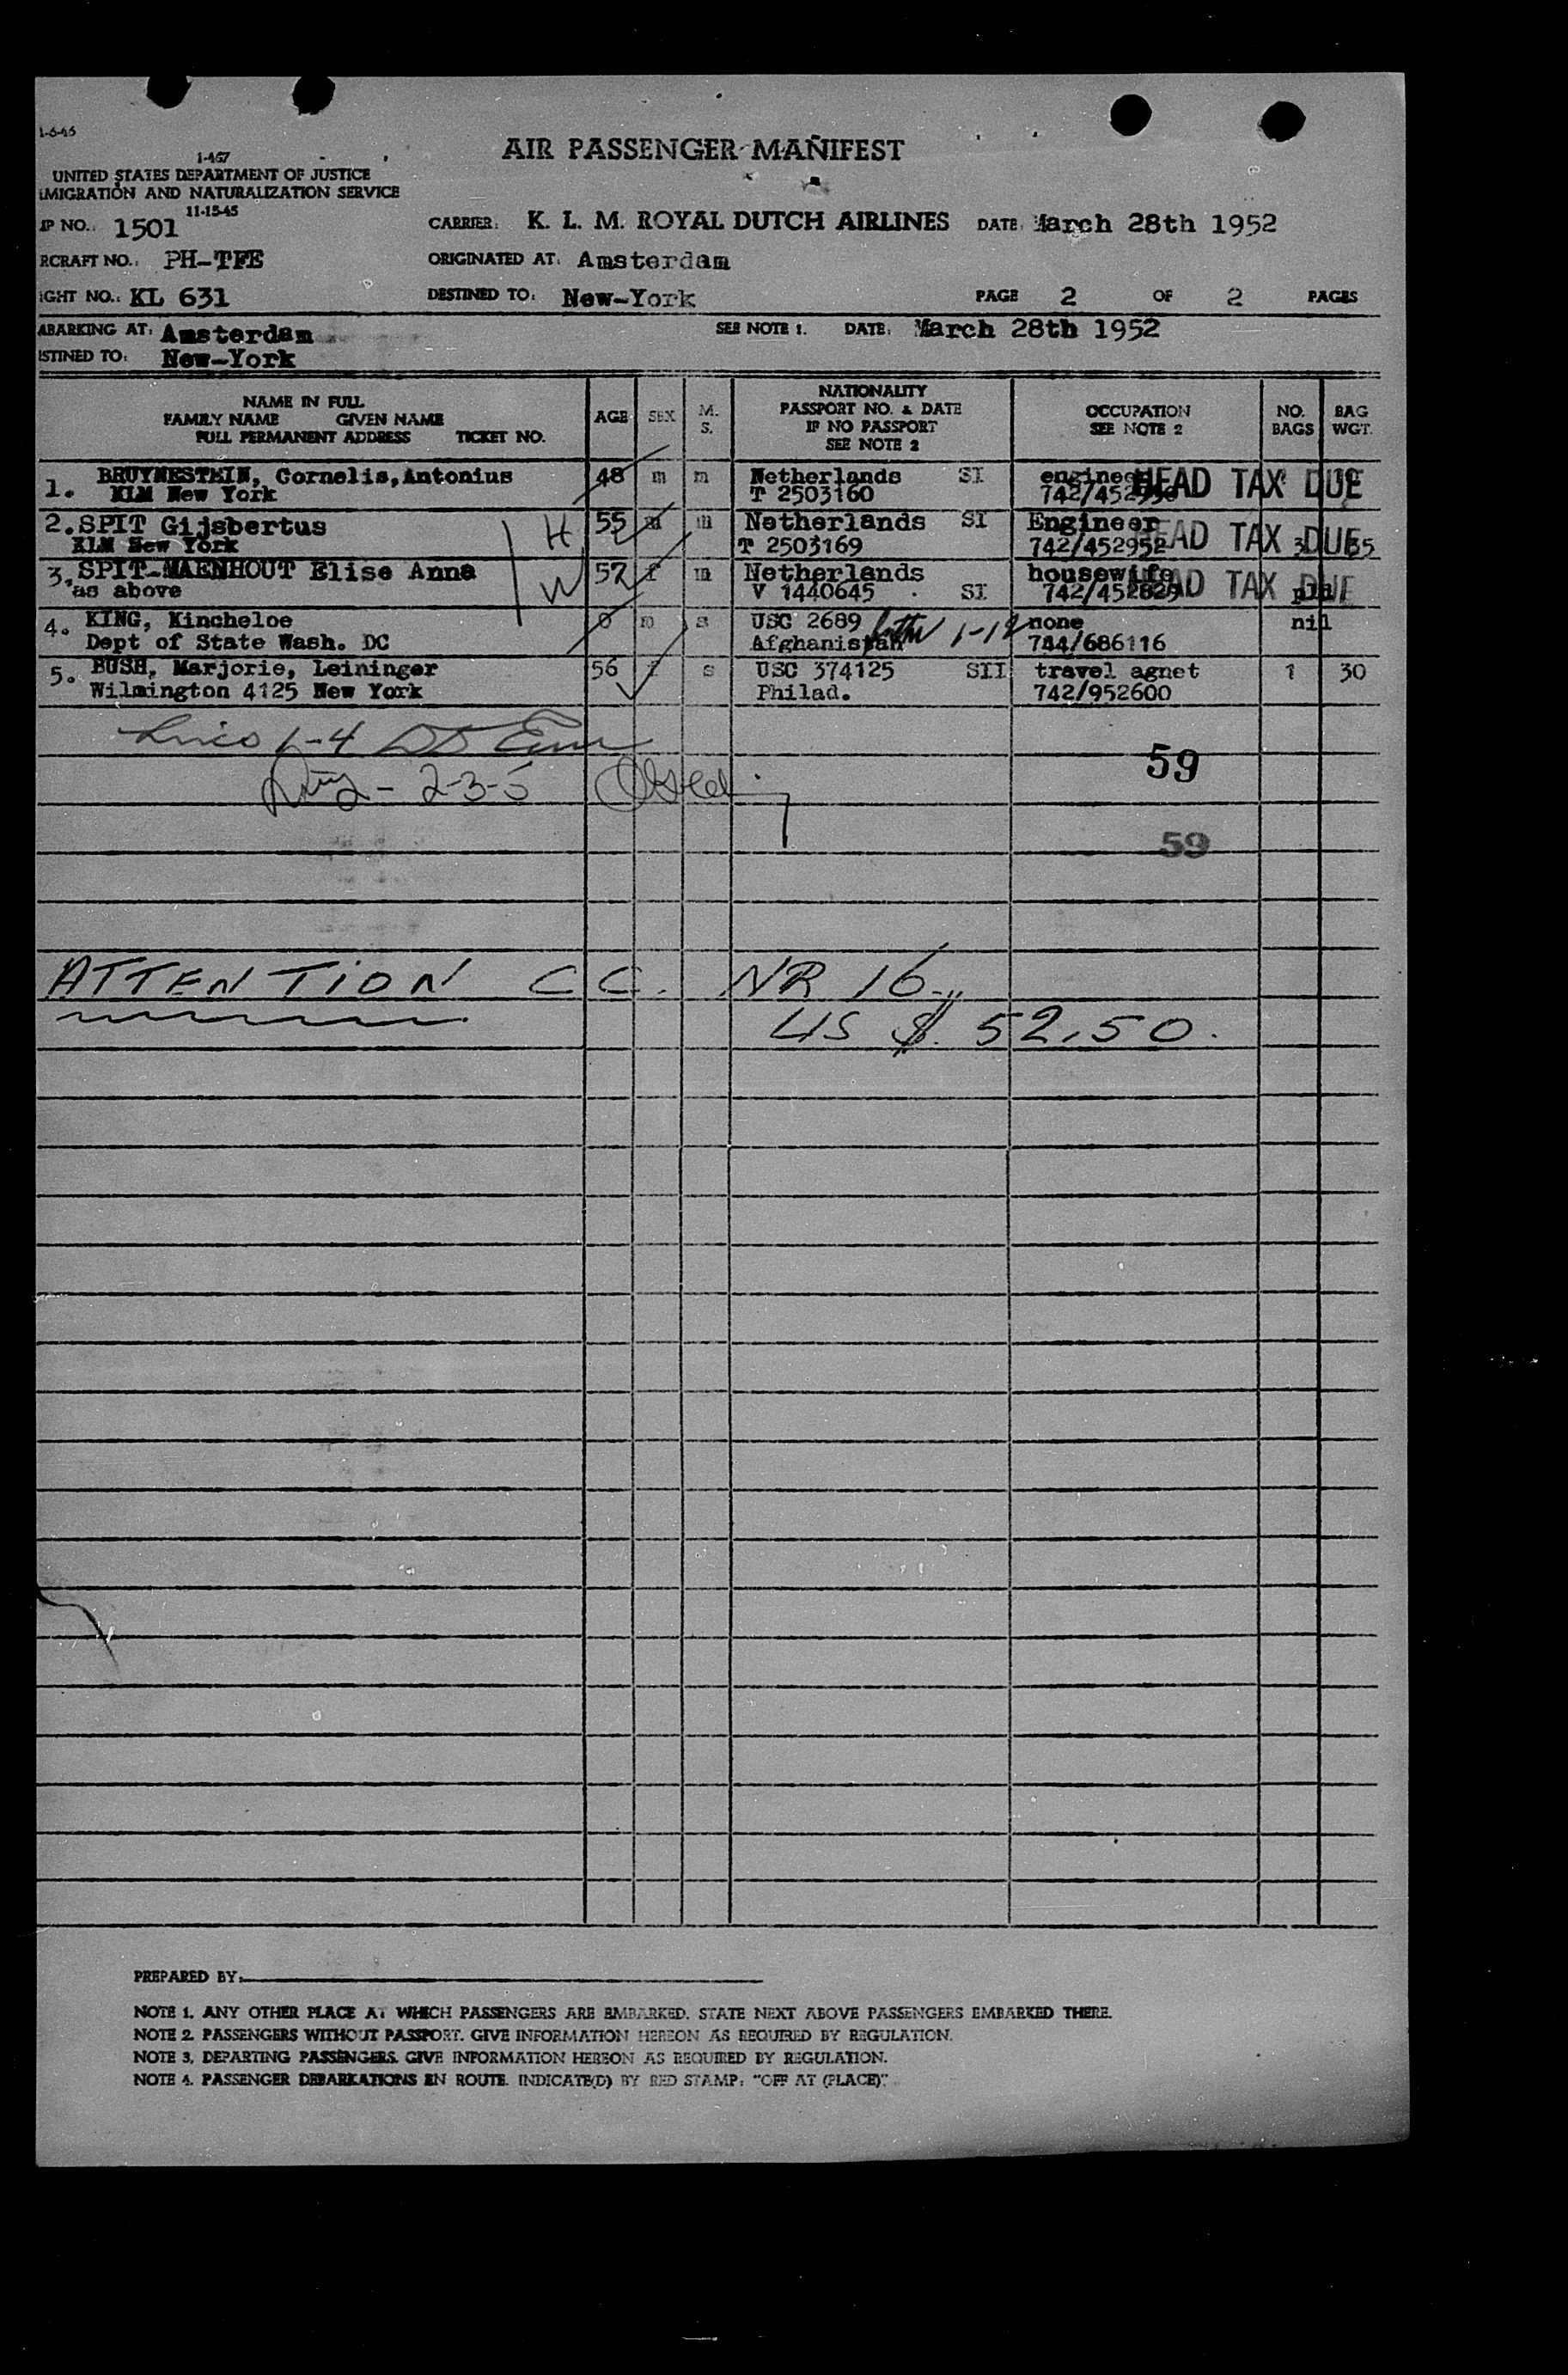 1-6-45
AIR PASSENGER MANIFEST
1-467
UNITED STATES DEPARTMENT OF JUSTICE
IMIGRATION AND NATURALIZATION SERVICE
11-15-45
IP NO.: 1501 CARRIER: K. L. M. ROYAL DUTCH AIRLINES DATE: March 28th 1952
RCRAFT NO.: PH-TFE ORIGINATED AT: Amsterdam
IGHT NO.: KL 631 DESTINED TO: New-York PAGE 2 OF 2 PAGES
ABARKING AT: Amsterdam SEE NOTE 1. DATE: March 28th 1952
ISTINED TO: New-York
NAME IN FULL
FAMILY NAME GIVEN NAME
FULL PERMANENT ADDRESS TICKET NO.
AGE SEX M. S.
NATIONALITY
PASSPORT NO. & DATE
IF NO PASSPORT
SEE NOTE 2
OCCUPATION
SEE NOTE 2
NO. BAGS
BAG WGT.
1. BRUYNESTEIN, Cornelis, Antonius 48 m m Netherlands SI engineer HEAD TAX DUE
KLM New York T 2503160
2. SPIT Gijsbertus H 55 m m Netherlands SI Engineer HEAD TAX DUE
KLM New York T 2503169 742/452952 3 35
3. SPIT-MAENHOUT Elise Anna W 57 f m Netherlands housewife HEAD TAX DUE
as above V 1440645 SI 742/452829
4. KING, Kincheloe 0 m s USC 2689 1-12 none nil
Dept of State Wash. DC Afghanistan 744/686116
5. BUSH, Marjorie, Leininger 56 f s USC 374125 SII travel agnet 1 30
Wilmington 4125 New York Philad. 742/952600
1-4
59
2-3-5
59
ATTENTION CC. NR 16
US $. 52,50.
PREPARED BY:
NOTE 1. ANY OTHER PLACE AT WHICH PASSENGERS ARE EMBARKED. STATE NEXT ABOVE PASSENGERS EMBARKED THERE.
NOTE 2. PASSENGERS WITHOUT PASSPORT. GIVE INFORMATION HEREON AS REQUIRED BY REGULATION.
NOTE 3. DEPARTING PASSENGERS. GIVE INFORMATION HEREON AS REQUIRED BY REGULATION.
NOTE 4. PASSENGER DEBARKATIONS EN ROUTE. INDICATE(D) BY RED STAMP: "OFF AT (PLACE)".